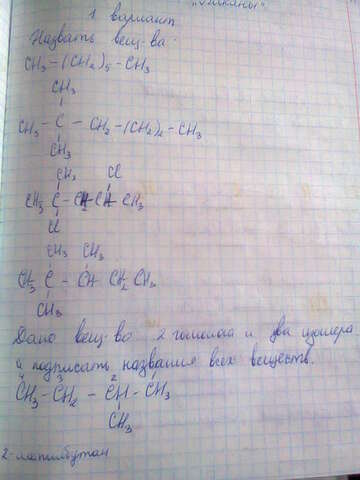 "Алканы"
1 вариант
Назвать вещ-ва:
CH3-(CH2)5-CH3
CH3
CH3-C-CH2-(CH2)2-CH3
CH3
CH3 Cl
CH3 C-CH2-CH-CH3
Cl
CH3 CH3
CH3 C-CH CH2 CH3
CH3
Дано вещ-во 2 гомолога и два изомера
и подписать названия всех веществ.
4 3 2
CH3-CH2-CH-CH3
CH3
2-метилбутан